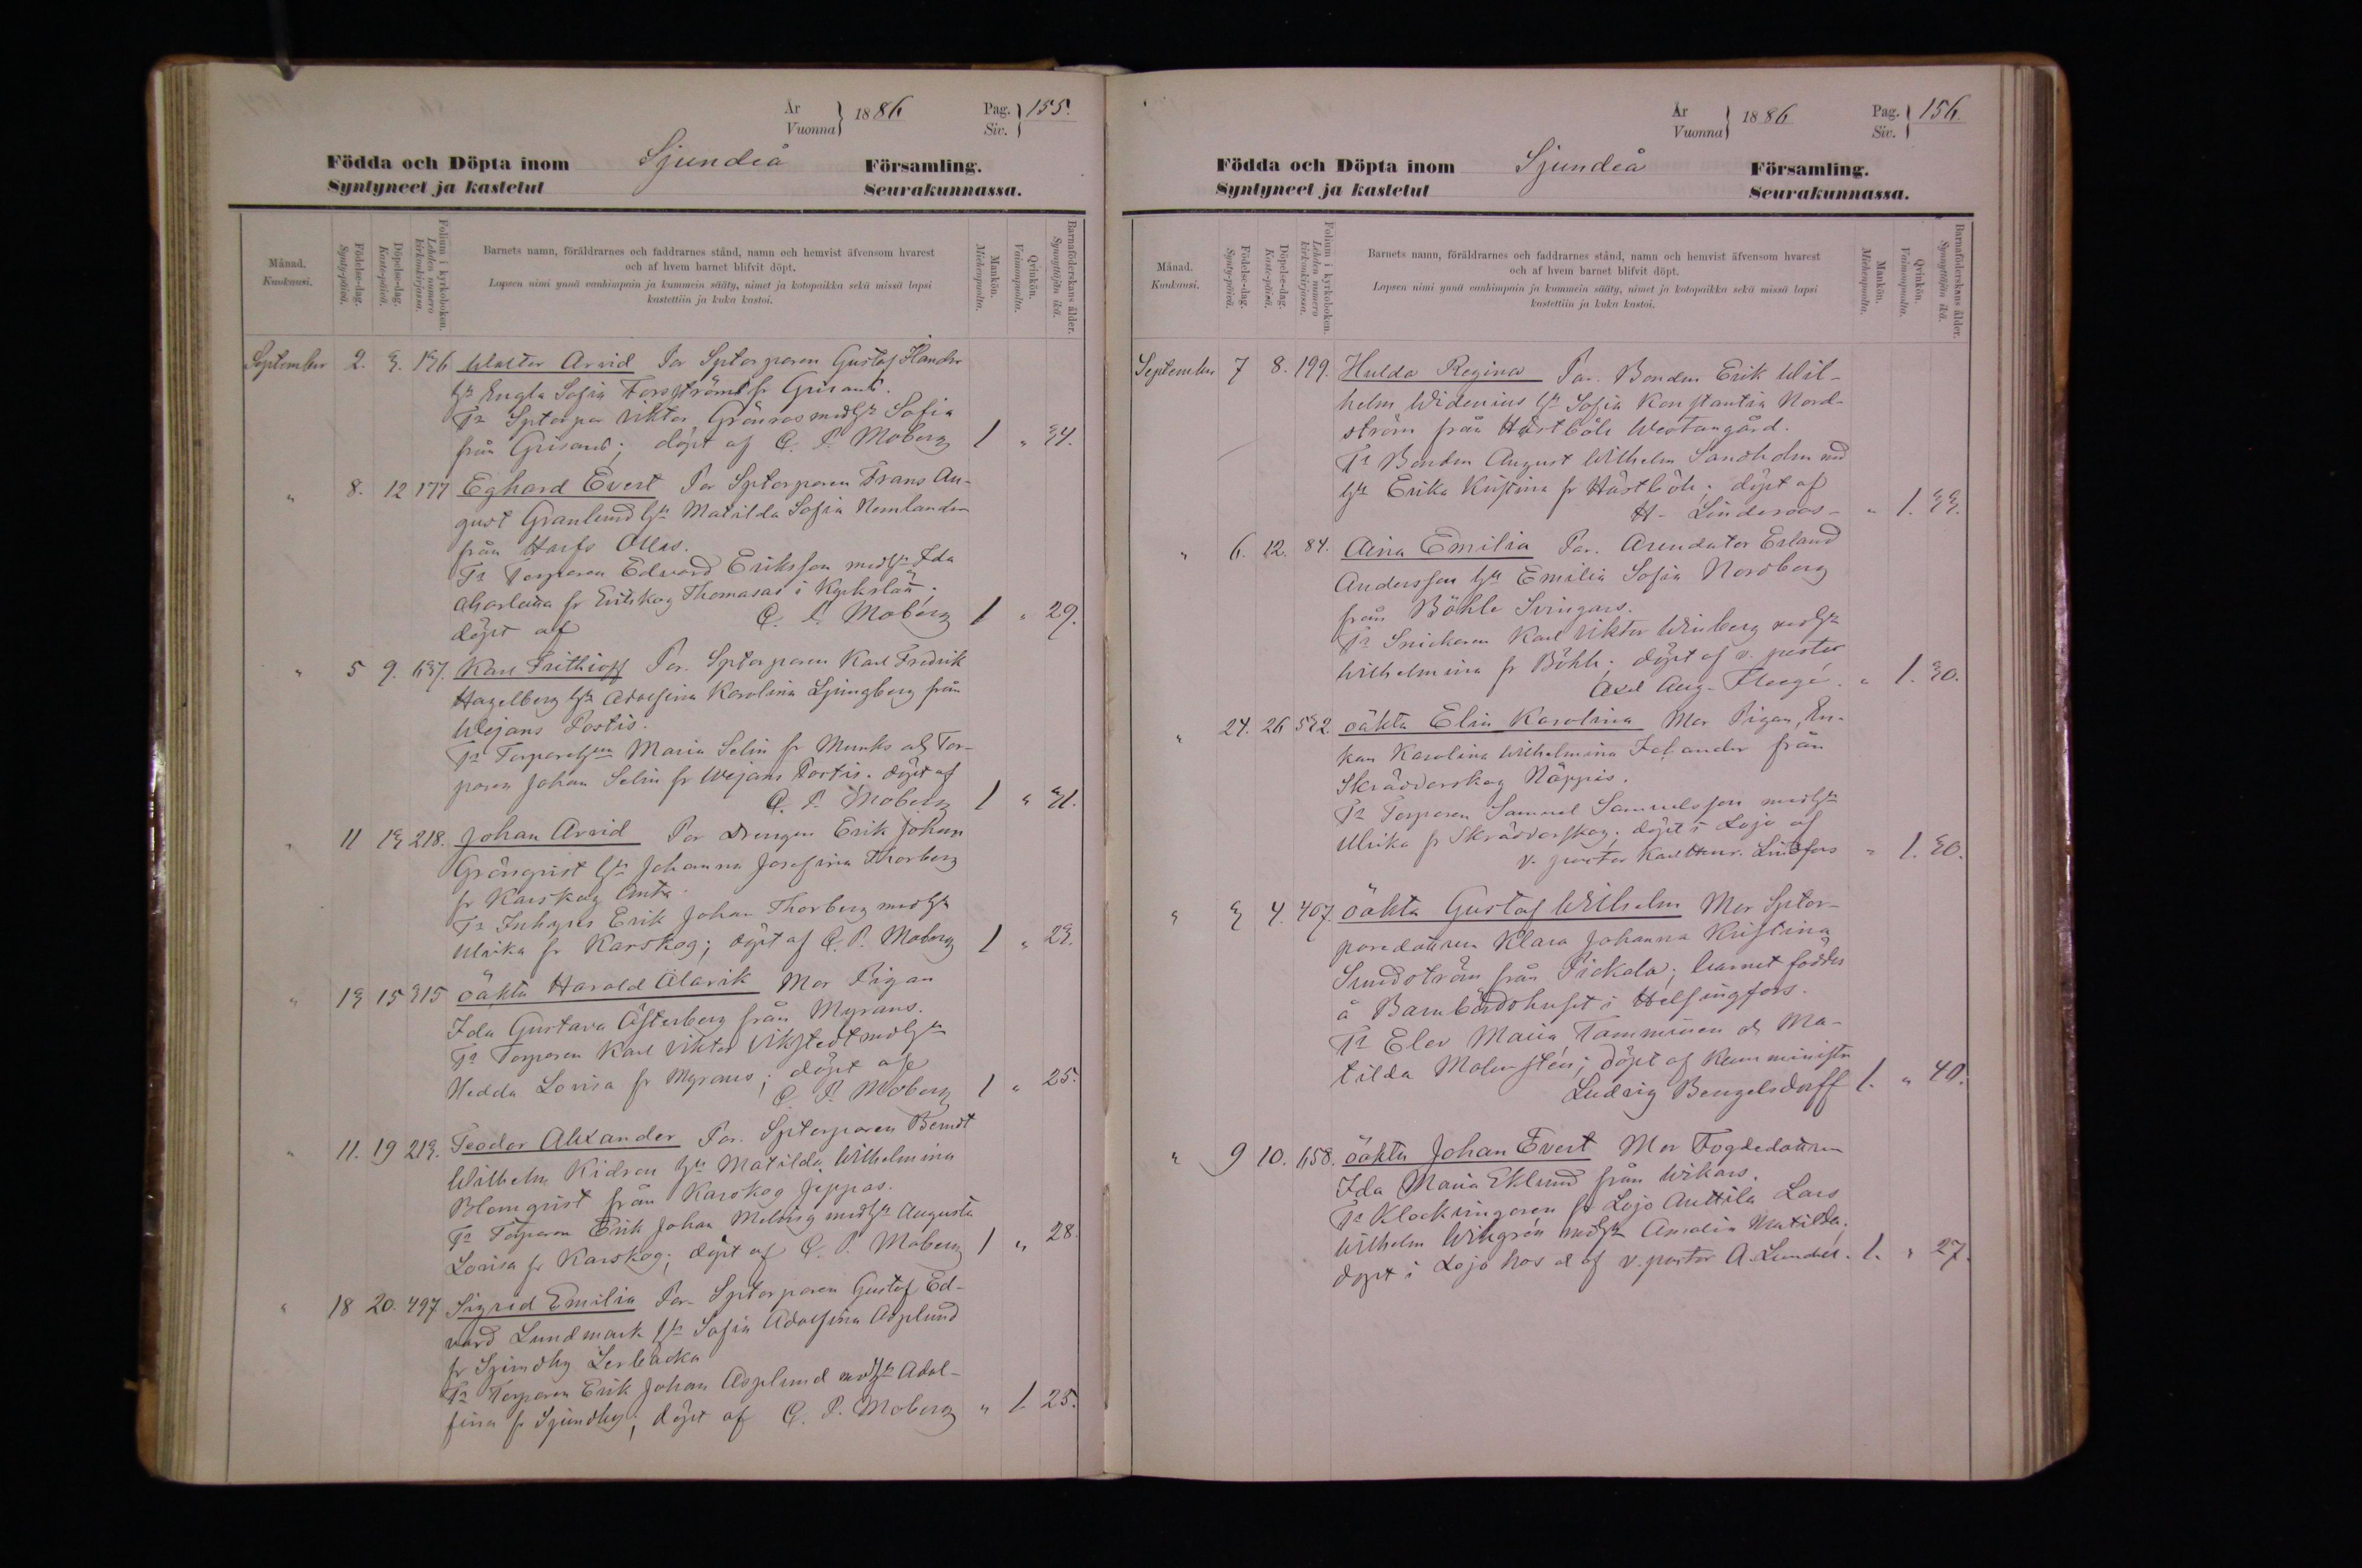 År
Vuonna
1886
Pag.
Siv.
155.
Födda och Döpta inom Sjundeå Församling.
Syntyneet ja kastetut Seurakunnassa.
Månad.
Kuukausi.
Födelse-dag.
Synty-päivä.
Döpelse-dag.
Kaste-päivä.
Folium i kyrkoboken.
Lehden numero kirkonkirjassa.
Barnets namn, föräldrarnes och faddrarnes stånd, namn och hemvist äfvensom hvarest
och af hvem barnet blifvit döpt.
Lapsen nimi ynnä vanhimpain ja kummein sääty, nimet ja kotopaikka sekä missä lapsi
kastettiin ja kuka kastoi.
Mankön.
Miehenpuolta.
Qvinkön.
Vaimonpuolta.
Barnaföderskans ålder.
Synnyttäjän ikä.
September 2. 3. 136 Walter Arvid Par Sptorparen Gustaf
Hu Engla Sofia Forsström fr Grisans.
Fr Sptorpar Viktor Grönroos med Hu Sofia
från Grisans; döpt af C. P. Moberg 1 " 34.
" 8. 12 177 Eghard Evert Par Sptorparen Frans Au-
gust Granlund Hu Matilda Sofia
från Harfs Ollas.
Fr Torparen Edvard Eriksson med Hu Ida
fr Thomasas i Kyrkslätt;
döpt af C. P. Moberg 1 " 29.
" 5 9. 637. Karl Frithioff Par. Sptorparen Karl Fredrik
Hagelberg Hu Adolfina Karolina Ljungberg från
Wejans Postis.
Fr Maria Selin fr Munks o Tor-
paren Johan Selin fr Wejans Postis. döpt af
C. P. Moberg 1 " 31.
" 11 13 218. Johan Arvid Par Drengen Erik Johan
Grönqvist Hu Johanna Josefina Thorberg
fr Karskog Antts.
Fr Inhyses Erik Johan Thorberg med Hu
Ulrika fr Karskog; döpt af C. P. Moberg 1 " 23.
" 13 15 315 oäkta Harald Alarik Mor Pigan
Ida Gustava Österberg från Myrans.
Fr Torparen Karl Viktor Vikstedt med Hu
Hedda Lovisa fr Myrans; döpt af
C. P. Moberg 1 " 25.
" 11. 19 213. Teodor Alexander Par. Sptorparen Berndt
Wilhelm Kidron Hu Matilda Wilhelmina
Blomqvist från Karskog Jeppas.
Fr Torparen Erik Johan Malmberg med Hu Augusta
Lovisa fr Karskog; döpt af C. P. Moberg 1 " 28.
" 18 20. 497 Sigrid Emilia Par. Sptorparen Gustaf Ed-
vard Lundmark Hu Sofia Adolfina Asplund
fr Sjundby
Fr Torparen Erik Johan Asplund med Hu Adol-
fina fr Sjundby; döpt af C. P. Moberg " 1 25.
År
Vuonna
1886
Pag.
Siv.
156.
Födda och Döpta inom Sjundeå Församling.
Syntyneet ja kastetut Seurakunnassa.
Månad.
Kuukausi.
Födelse-dag.
Synty-päivä.
Döpelse-dag.
Kaste-päivä.
Folium i kyrkoboken.
Lehden numero kirkonkirjassa.
Barnets namn, föräldrarnes och faddrarnes stånd, namn och hemvist äfvensom hvarest
och af hvem barnet blifvit döpt.
Lapsen nimi ynnä vanhimpain ja kummein sääty, nimet ja kotopaikka sekä missä lapsi
kastettiin ja kuka kastoi.
Mankön.
Miehenpuolta.
Qvinkön.
Vaimonpuolta.
Barnaföderskans ålder.
Synnyttäjän ikä.
September 7 8. 199. Hulda Regina Par. Bonden Erik Wil-
helm Widenius Hu Sofia Konstantia Nord-
ström från Hästböle Westangård.
Fr Bonden August Wilhelm Sandholm med
Hu Erika Kristina fr Hästböle; döpt af
H. Linderoos " 1. 33.
" 6. 12. 84. Aina Emilia Par. Arendator Erland
Andersson Hu Emilia Sofia Nordberg
från Böhle Svingars.
Fr Snickaren Karl Viktor Winberg med Hu
Wilhelmina fr Böhle; döpt af v. pastor
Axel Aug. Fleege. " 1. 30.
" 24. 26 532. oäkta Elin Karolina Mor Pigan, En-
kan Karolina Wilhelmina från
Skräddarskog Näppis.
Fr Torparen Samuel Samuelsson med Hu
Ulrika fr Skräddarskog; döpt i Lojo af
v. pastor Karl Henr. Lindfors " 1. 30.
" 3 4. 407. oäkta Gustaf Wilhelm Mor Sptor-
paredottren Klara Johanna Kristina
Sundström från Pickala; barnet foddes
å Barnbördshuset i Helsingfors.
Fr Elev Maria Tamminen o Ma-
tilda Malmstén; döpt af Kumminister
Ludvig Bengelsdorff 1. " 40.
" 9 10. 658. oäkta Johan Evert Mor Fogdedottren
Ida Maria Eklund från Wikars.
Fr Klockringaren fr Lojo Anttila Lars
Wilhelm Wingrén med Hu Amalia Matilda;
döpt i Lojo hos o af v. pastor A. Lundell. 1. " 27.